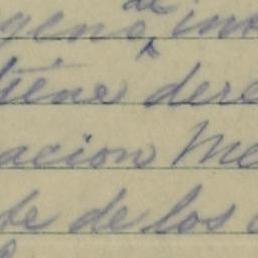 de
geno, in
tiene dere
acion Me
te de los